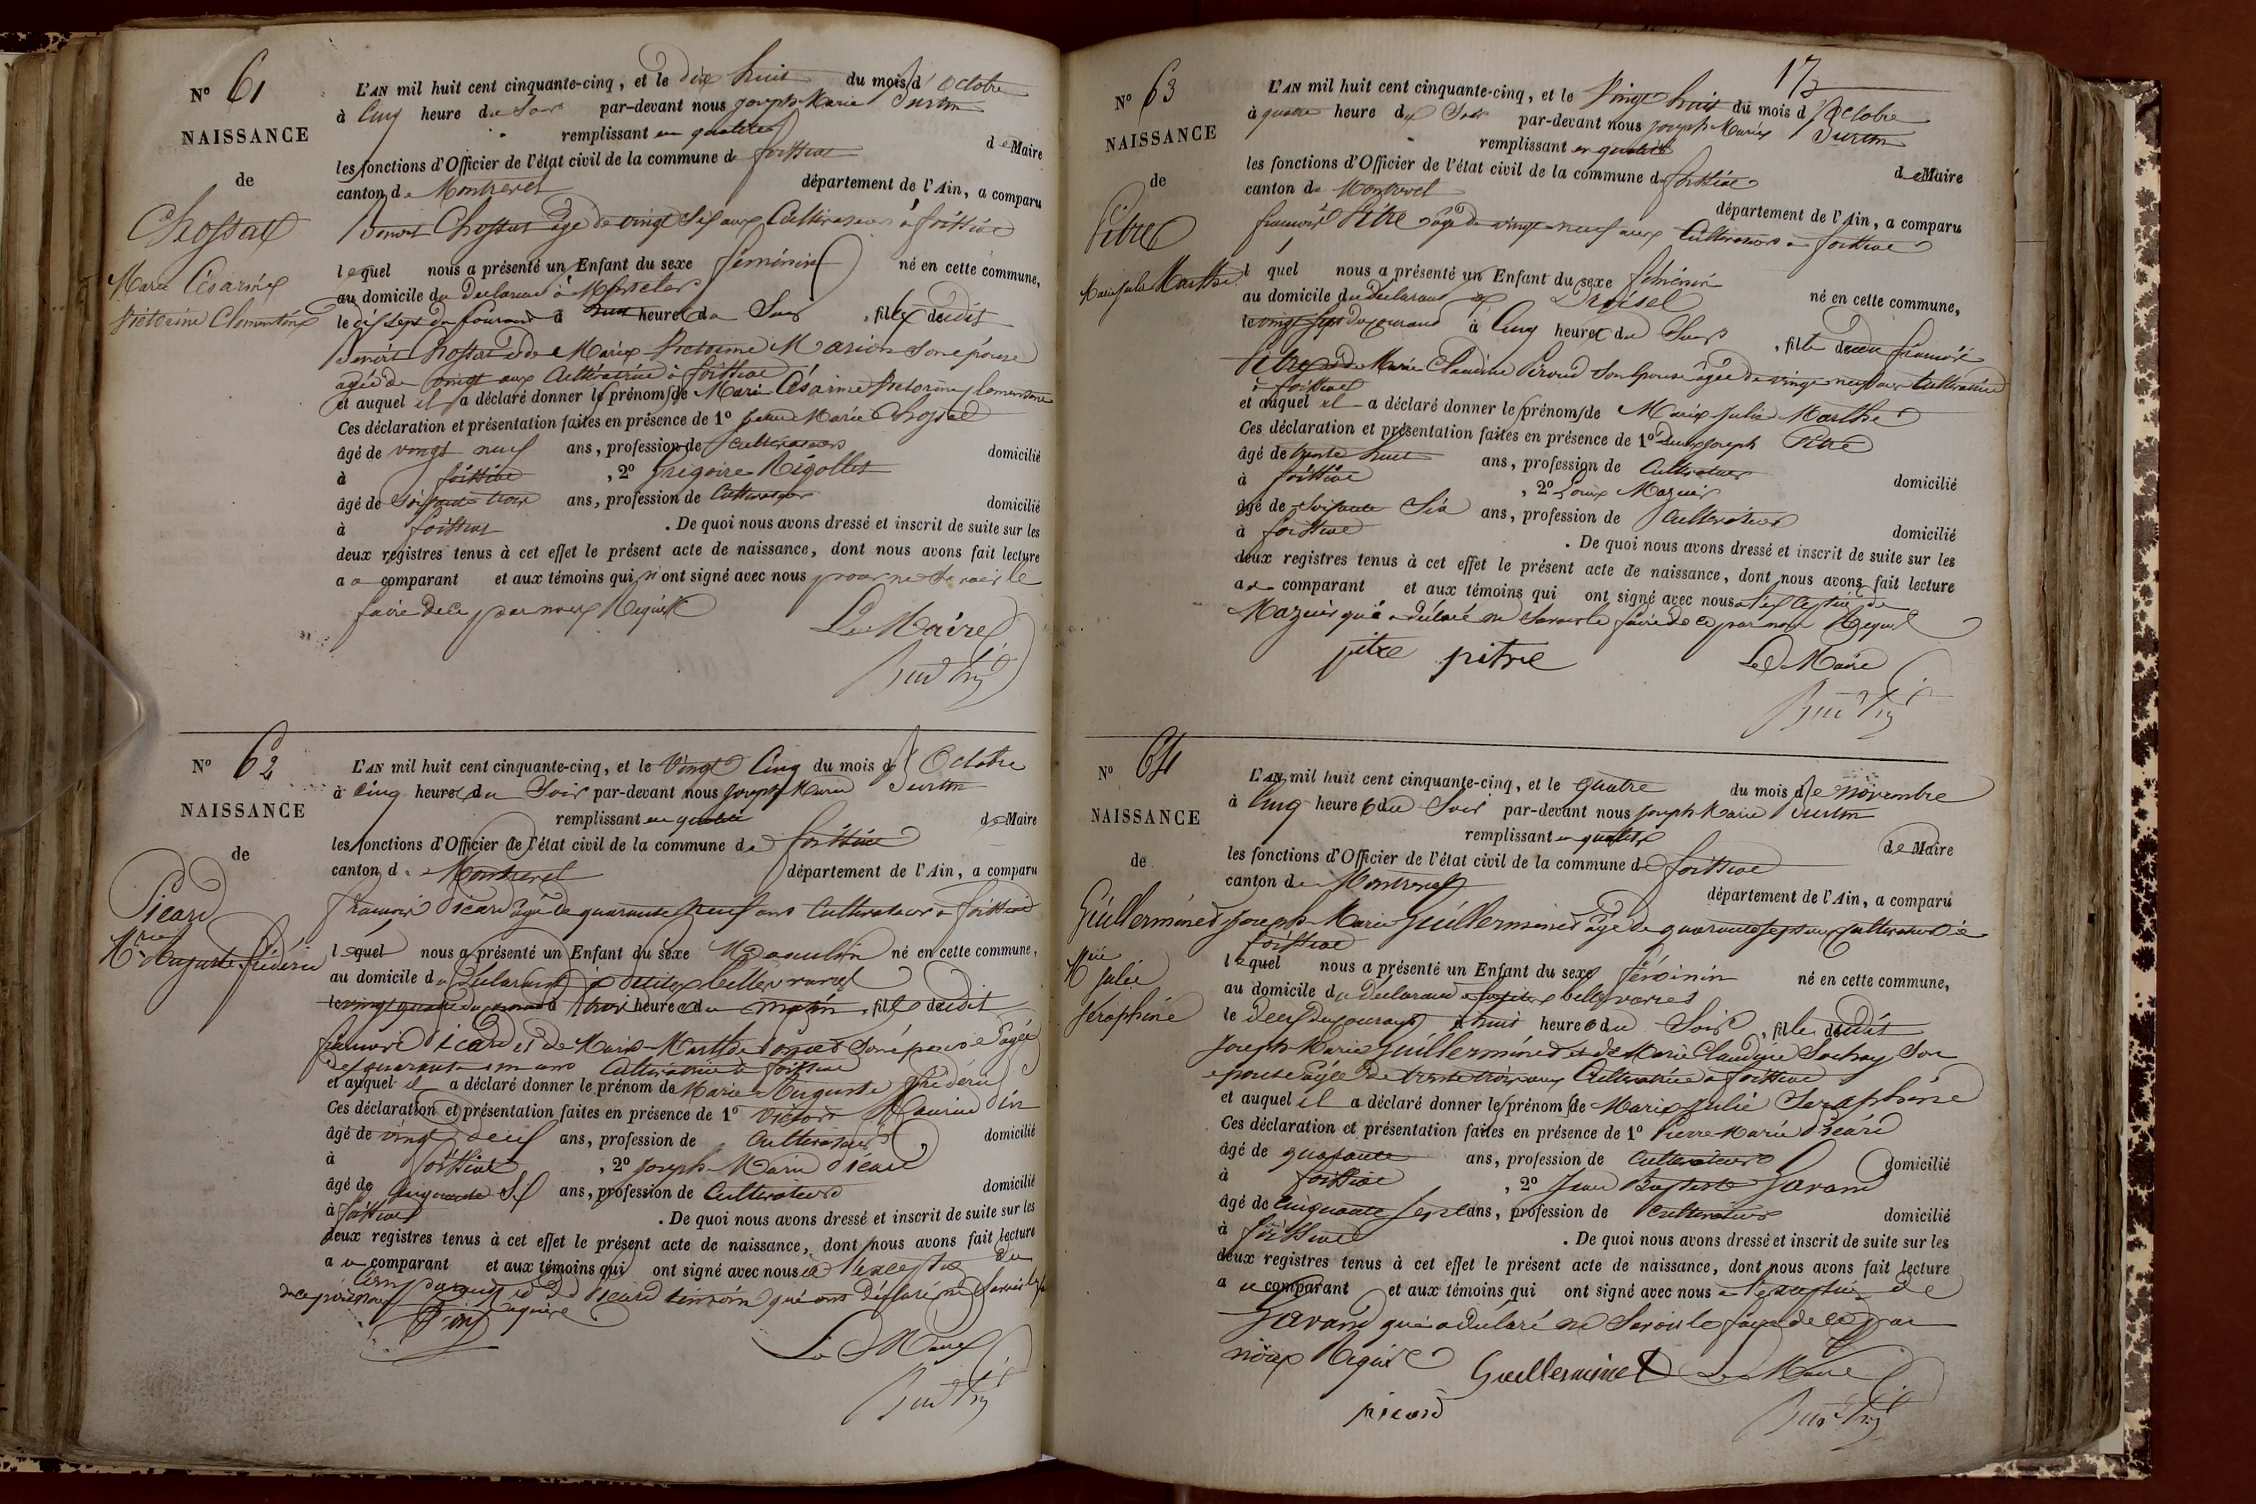 N° 61
NAISSANCE
de
Chossat
Marie Césarine
Victorine Clementine
L'AN mil huit cent cinquante-cinq, et le dix huit du mois d'Octobre
à Cinq heure du Soir par-devant nous Joseph Marie
remplissant en qualité de Maire
les fonctions d'Officier de l'état civil de la commune de foissiat
canton de Montrevel département de l'Ain, a comparu
Benoit Chossat âgé de vingt Six ans Cultivateur à foissiat
lequel nous a présenté un Enfant du sexe féminin né en cette commune,
au domicile du Declarant à
le dix sept du Courant à heure du Soir, fille dudit
Benoit Chossat et de Marie Victorine Marion Son épouse
agée de vingt ans Cultivatrice à foissiat
et auquel il a déclaré donner le prénom de Marie Césarine Victorine Clementine
Ces déclaration et présentation faites en présence de 1° Jean Marie Chossat
âgé de vingt neuf ans, profession de Cultivateur domicilié
à foissiat, 2° Grégoire Rigollet
âgé de Soixante trois ans, profession de Cultivateur domicilié
à foissiat. De quoi nous avons dressé et inscrit de suite sur les
deux registres tenus à cet effet le présent acte de naissance, dont nous avons fait lecture
au comparant et aux témoins qui n'ont signé avec nous pour ne Savoir le
faire de ce par nous Requis
Le Maire
N° 62
NAISSANCE
de
Picard
Mrie Auguste frédéric
L'AN mil huit cent cinquante-cinq, et le Vingt Cinq du mois d'Octobre
à Cinq heures du Soir par-devant nous Joseph Marie
remplissant en qualité de Maire
les fonctions d'Officier de l'état civil de la commune de foissiat
canton de Montrevel département de l'Ain, a comparu
françois Picard âgé de quarante neuf ans Cultivateur à foissiat
lequel nous a présenté un Enfant du sexe Masculin né en cette commune,
au domicile du Déclarant à
le vingt quatre du courant à trois heures du matin, fils dudit
françois Picard et de Marie Marthe Son épouse agée
de quarante un ans Cultivatrice à foissiat
et auquel il a déclaré donner le prénom de Marie Auguste frédéric
Ces déclaration et présentation faites en présence de 1° Victor
âgé de vingt neuf ans, profession de Cultivateur domicilié
à foissiat, 2° Joseph Marie Picard
âgé de Cinquante Six ans, profession de Cultivateur domicilié
à foissiat. De quoi nous avons dressé et inscrit de suite sur les
deux registres tenus à cet effet le présent acte de naissance, dont nous avons fait lecture
au comparant et aux témoins qui ont signé avec nous à l'exception du
Comparant et de Picard témoin qui ont déclaré ne Savoir le faire
de ce par nous Requis
Le Maire
173
N° 63
NAISSANCE
de
Pitre
Marie Julie Marthe
L'AN mil huit cent cinquante-cinq, et le Vingt huit du mois d'Octobre
à quatre heure du Soir par-devant nous Joseph Marie
remplissant en qualité de Maire
les fonctions d'Officier de l'état civil de la commune de foissiat
canton de Montrevel département de l'Ain, a comparu
françois Pitre âgé de vingt neuf ans Cultivateur à foissiat
lequel nous a présenté un Enfant du sexe féminin né en cette commune,
au domicile du Déclarant
le vingt sept du courant à Cinq heures du Soir, fille dudit françois
Pitre et de Marie Claudine Son épouse agée de vingt neuf ans Cultivatrice
à foissiat
et auquel il a déclaré donner le prénom de Marie Julie Marthe
Ces déclaration et présentation faites en présence de 1° Joseph Pitre
âgé de trente huit ans, profession de Cultivateur domicilié
à foissiat, 2° Louis Mazuir
âgé de Soixante Six ans, profession de Cultivateur domicilié
à foissiat. De quoi nous avons dressé et inscrit de suite sur les
deux registres tenus à cet effet le présent acte de naissance, dont nous avons fait lecture
au comparant et aux témoins qui ont signé avec nous à l'exception de
Mazuir qui a déclaré ne Savoir le faire de ce par nous Requis
pitre pitre Le Maire
N° 64
NAISSANCE
de
Guillerminet
Mrie Julie
Séraphine
L'AN mil huit cent cinquante-cinq, et le quatre du mois de novembre
à Cinq heures du Soir par-devant nous Joseph Marie
remplissant en qualité de Maire
les fonctions d'Officier de l'état civil de la commune de foissiat
canton de Montrevel département de l'Ain, a comparu
Joseph Marie Guillerminet âgé de quarante sept ans Cultivateur à
foissiat
lequel nous a présenté un Enfant du sexe féminin né en cette commune,
au domicile du Déclarant
le deux du courant à huit heures du Soir, fille dudit
Joseph Marie Guillerminet et de Marie Claudine Sochay Son
epouse agée de trente trois ans Cultivatrice à foissiat
et auquel il a déclaré donner le prénom de Marie Julie Seraphine
Ces déclaration et présentation faites en présence de 1° Pierre Marie Picard
âgé de quarante ans, profession de Cultivateur domicilié
à foissiat, 2° Jean Baptiste Gavand
âgé de Cinquante Sept ans, profession de Cultivateur domicilié
à foissiat. De quoi nous avons dressé et inscrit de suite sur les
deux registres tenus à cet effet le présent acte de naissance, dont nous avons fait lecture
au comparant et aux témoins qui ont signé avec nous à l'exception de
Gavand qui a déclaré ne Savoir le faire de ce par
nous Requis Guillerminet Le Maire
picard